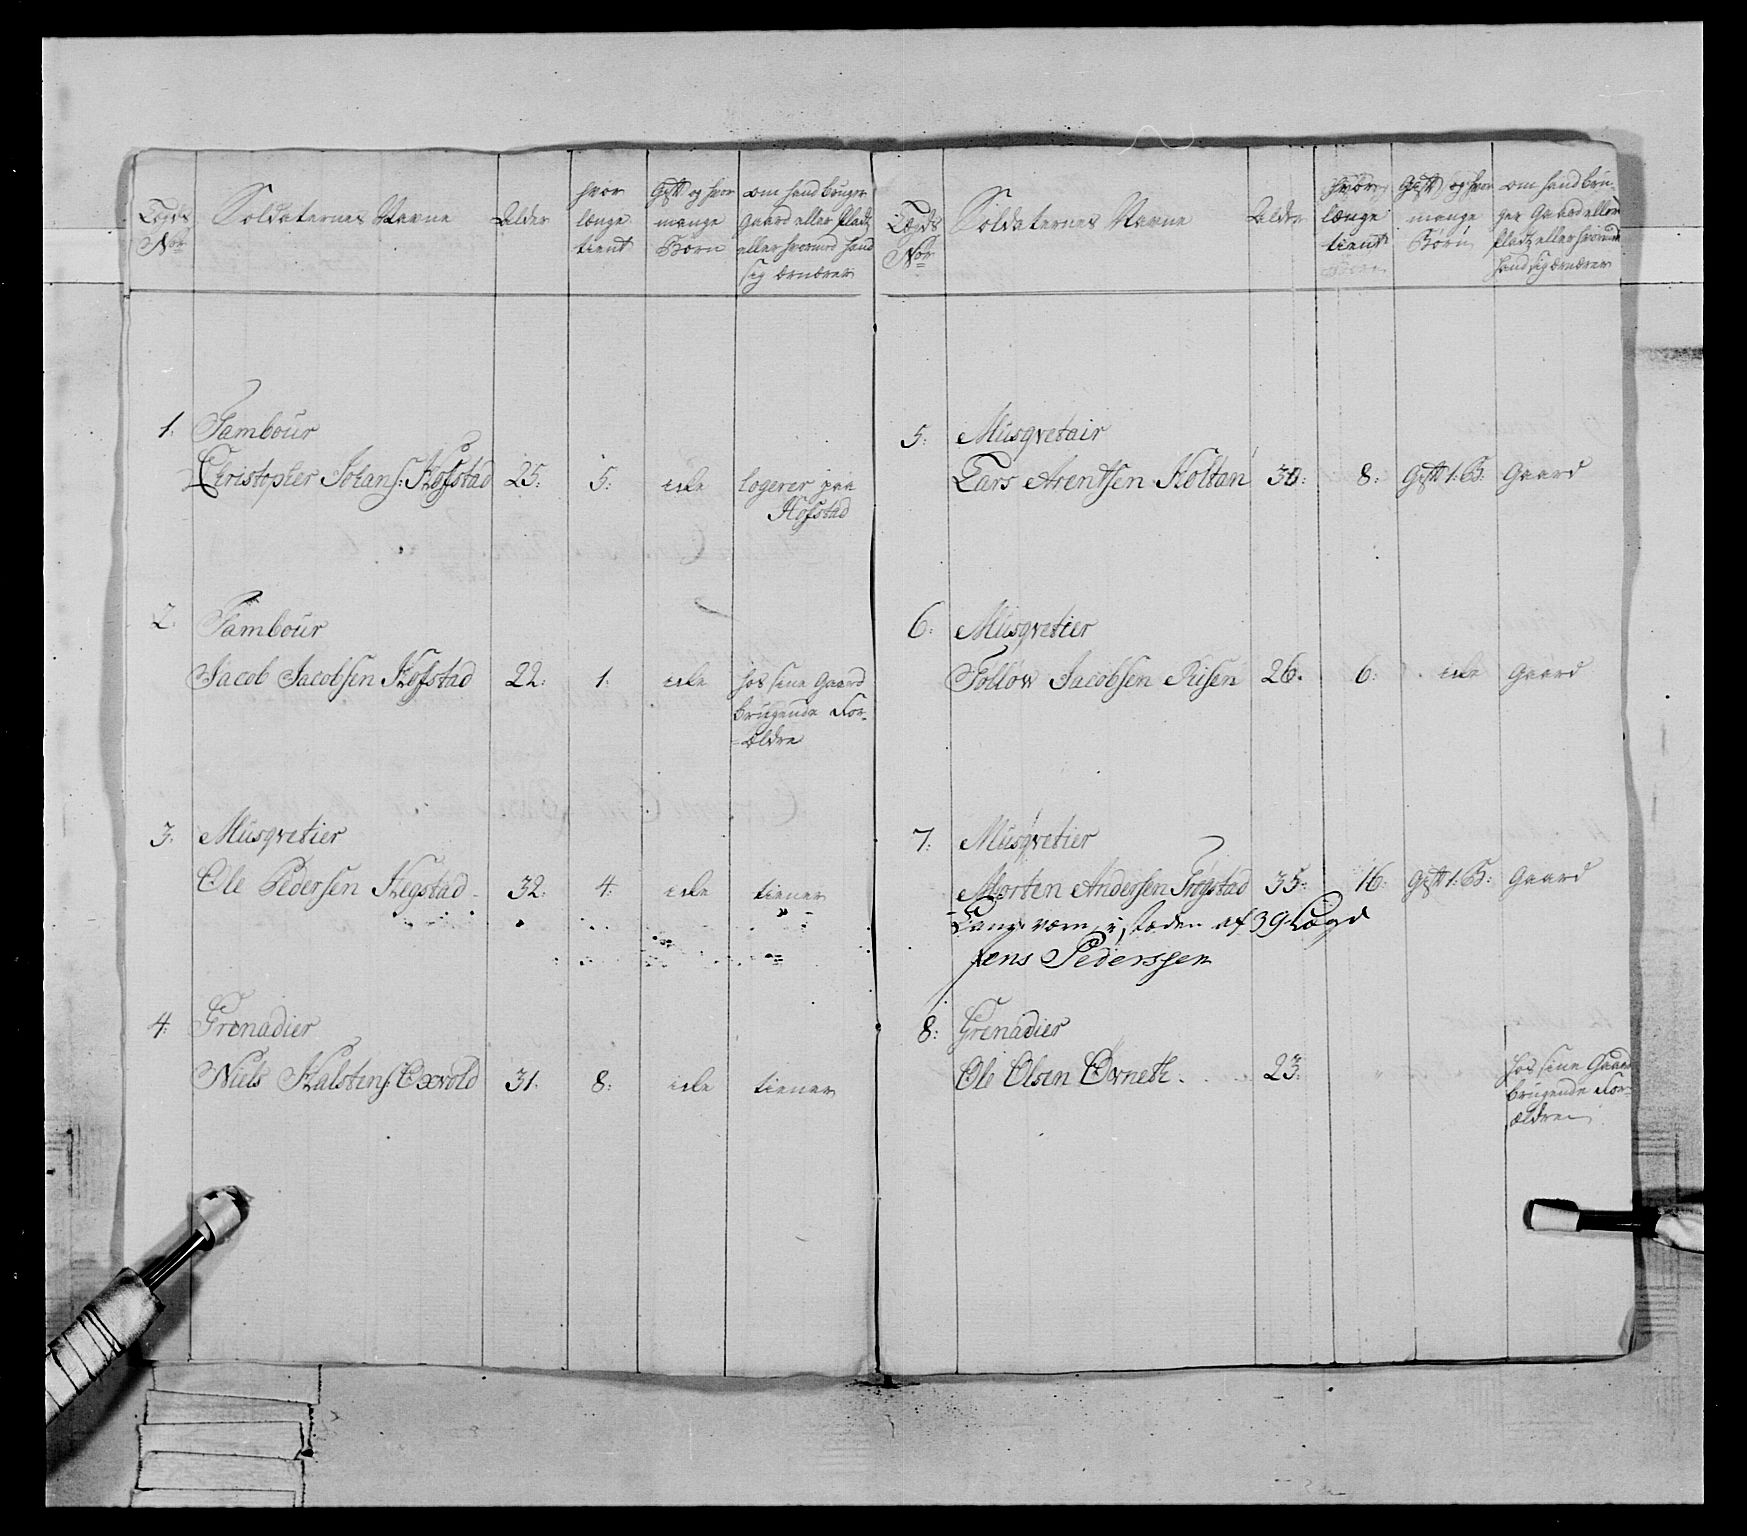 Lægds Nor
Soldaternes Navne
Alder
hvor længe tient
Gift og hvor mange Børn
om hand bruger Gaard eller Pladz eller hvormed hand sig ærnærer
1. Tambour
Christopher Johans: Hofstad 25. 5. icke logerer paa
Hofstad
2. Tambour
Jacob Jacobsen Hofstad 22. 1. icke hos sine Gaard
brugende For-
ældre
3. Musqvetier
Ole Pedersen Hegstad 32. 4. icke tiener
4. Grenadier
Niels Halstens: Oxvold 31. 8. icke tiener
Lægds Nor
Soldaternes Navne
Alder
hvor længe tient
Gift og hvor mange Børn
om hand bru-
ger Gaard eller
Pladz eller hvormed
hand sig ærnærer
5. Musqvetair
Lars Arentsen Holtan 30. 8. Gift 1. B. Gaard
6. Musqvetier
Follow Jacobsen Risen 26. 6. icke Gaard
7. Musqvetier
Morten Andersen Frogstad 35. 16. Gift 1. B. Gaard
i staden af 39 Lægd
Jens Pederssen
8. Grenadier
Ole Olsen Øvneth 23. hos sine Gaard
brugende For-
ældre